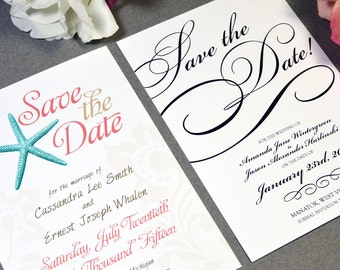 Save
the
Date
For the marriage of
Cassandra Lee Smith
and
Ernest Joseph Whalen
Saturday, July Twentieth
Thousand Fifteen
Michigan
Save the
Date!
FOR THE WEDDING OF
Amanda Jane Wintergreen
and
Jason Alexander Harkinski
ON THE DATE OF
January 23rd,
MANATOK, WEST
FORMAL INVITATION